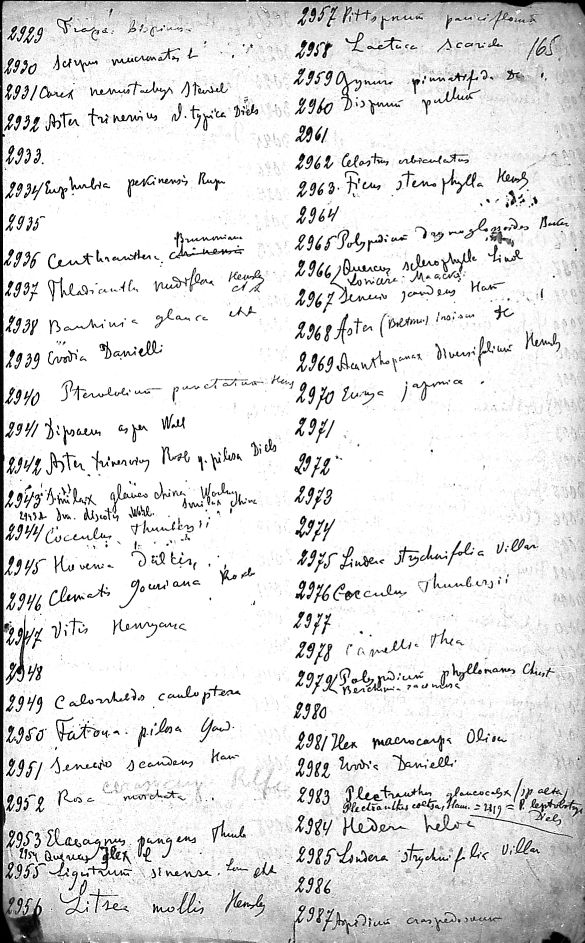 2929 Trapa bispinosa
2930 Scirpus mucronatus L
2931 Carex nemostachys Steudel
2932 Aster trinervius v. typica Diels
2933.
2934 Euphorbia pekinensis Rupr
2935
Brunoniana
2936 Centhranthera chinensis
2937 Thladiantha nudiflora Hemsley
2938 Bauhinia glauca
2939 Evodia Danielli
2940 Pterolobium punctatum Hems
2941 Dipsacus asper Wall
2942 Aster trinervius Roxb v. pilosa Diels
2943 Smilax glauco china Warbg
Smilax china
2944 Cocculus Thunbergii
2945 Hovenia Dulcis
2946 Clematis gouriana Roxb
2947 Vitis Henryana
2948
2949 Calorhabdos cauloptera
2950 Fatoua pilosa Gaud.
2951 Senecio scandens Ham
2952 Rosa
2953 Elaeagnus pungens Thunb
2954 Quercus Ilex L
2955 Ligustrum sinense. Lour
2956 Litsea mollis Hemsley
165
2957 Pittosporum pauciflorum
2958 Lactuca scariola
2959 Gynura pinnatifida Dc
2960 Disporum pullum
2961
2962 Celastrus orbiculatus
2963. Ficus stenophylla Hemsly
2964
2965 Polypodium drymoglossoides Baker
2966 Quercus sclerophylla Lindl
Lonicera Maackii
2967 Senecio scandens Ham
2968 Aster
2969 Acanthopanax diversifolium Hemsly
2970 Eurya japonica
2971
2972
2973
2974
2975 Lindera strychnifolia Villar
2976 Cocculus Thunbergii
2977
2978 Camellia Thea
2979 Polypodium phyllomanes Christ
Berchemia racemosa
2980
2981 Ilex macrocarpa Oliver
2982 Evodia Danielli
2983 Plectranthus glaucocalyx (sp alta)
Plectranthus coetsa Ham. = 2919 = P. leptobotrys
Diels
2984 Hedera helix
2985 Lindera strychnifolia Villar
2986
2987 Aspidium craspedosorum